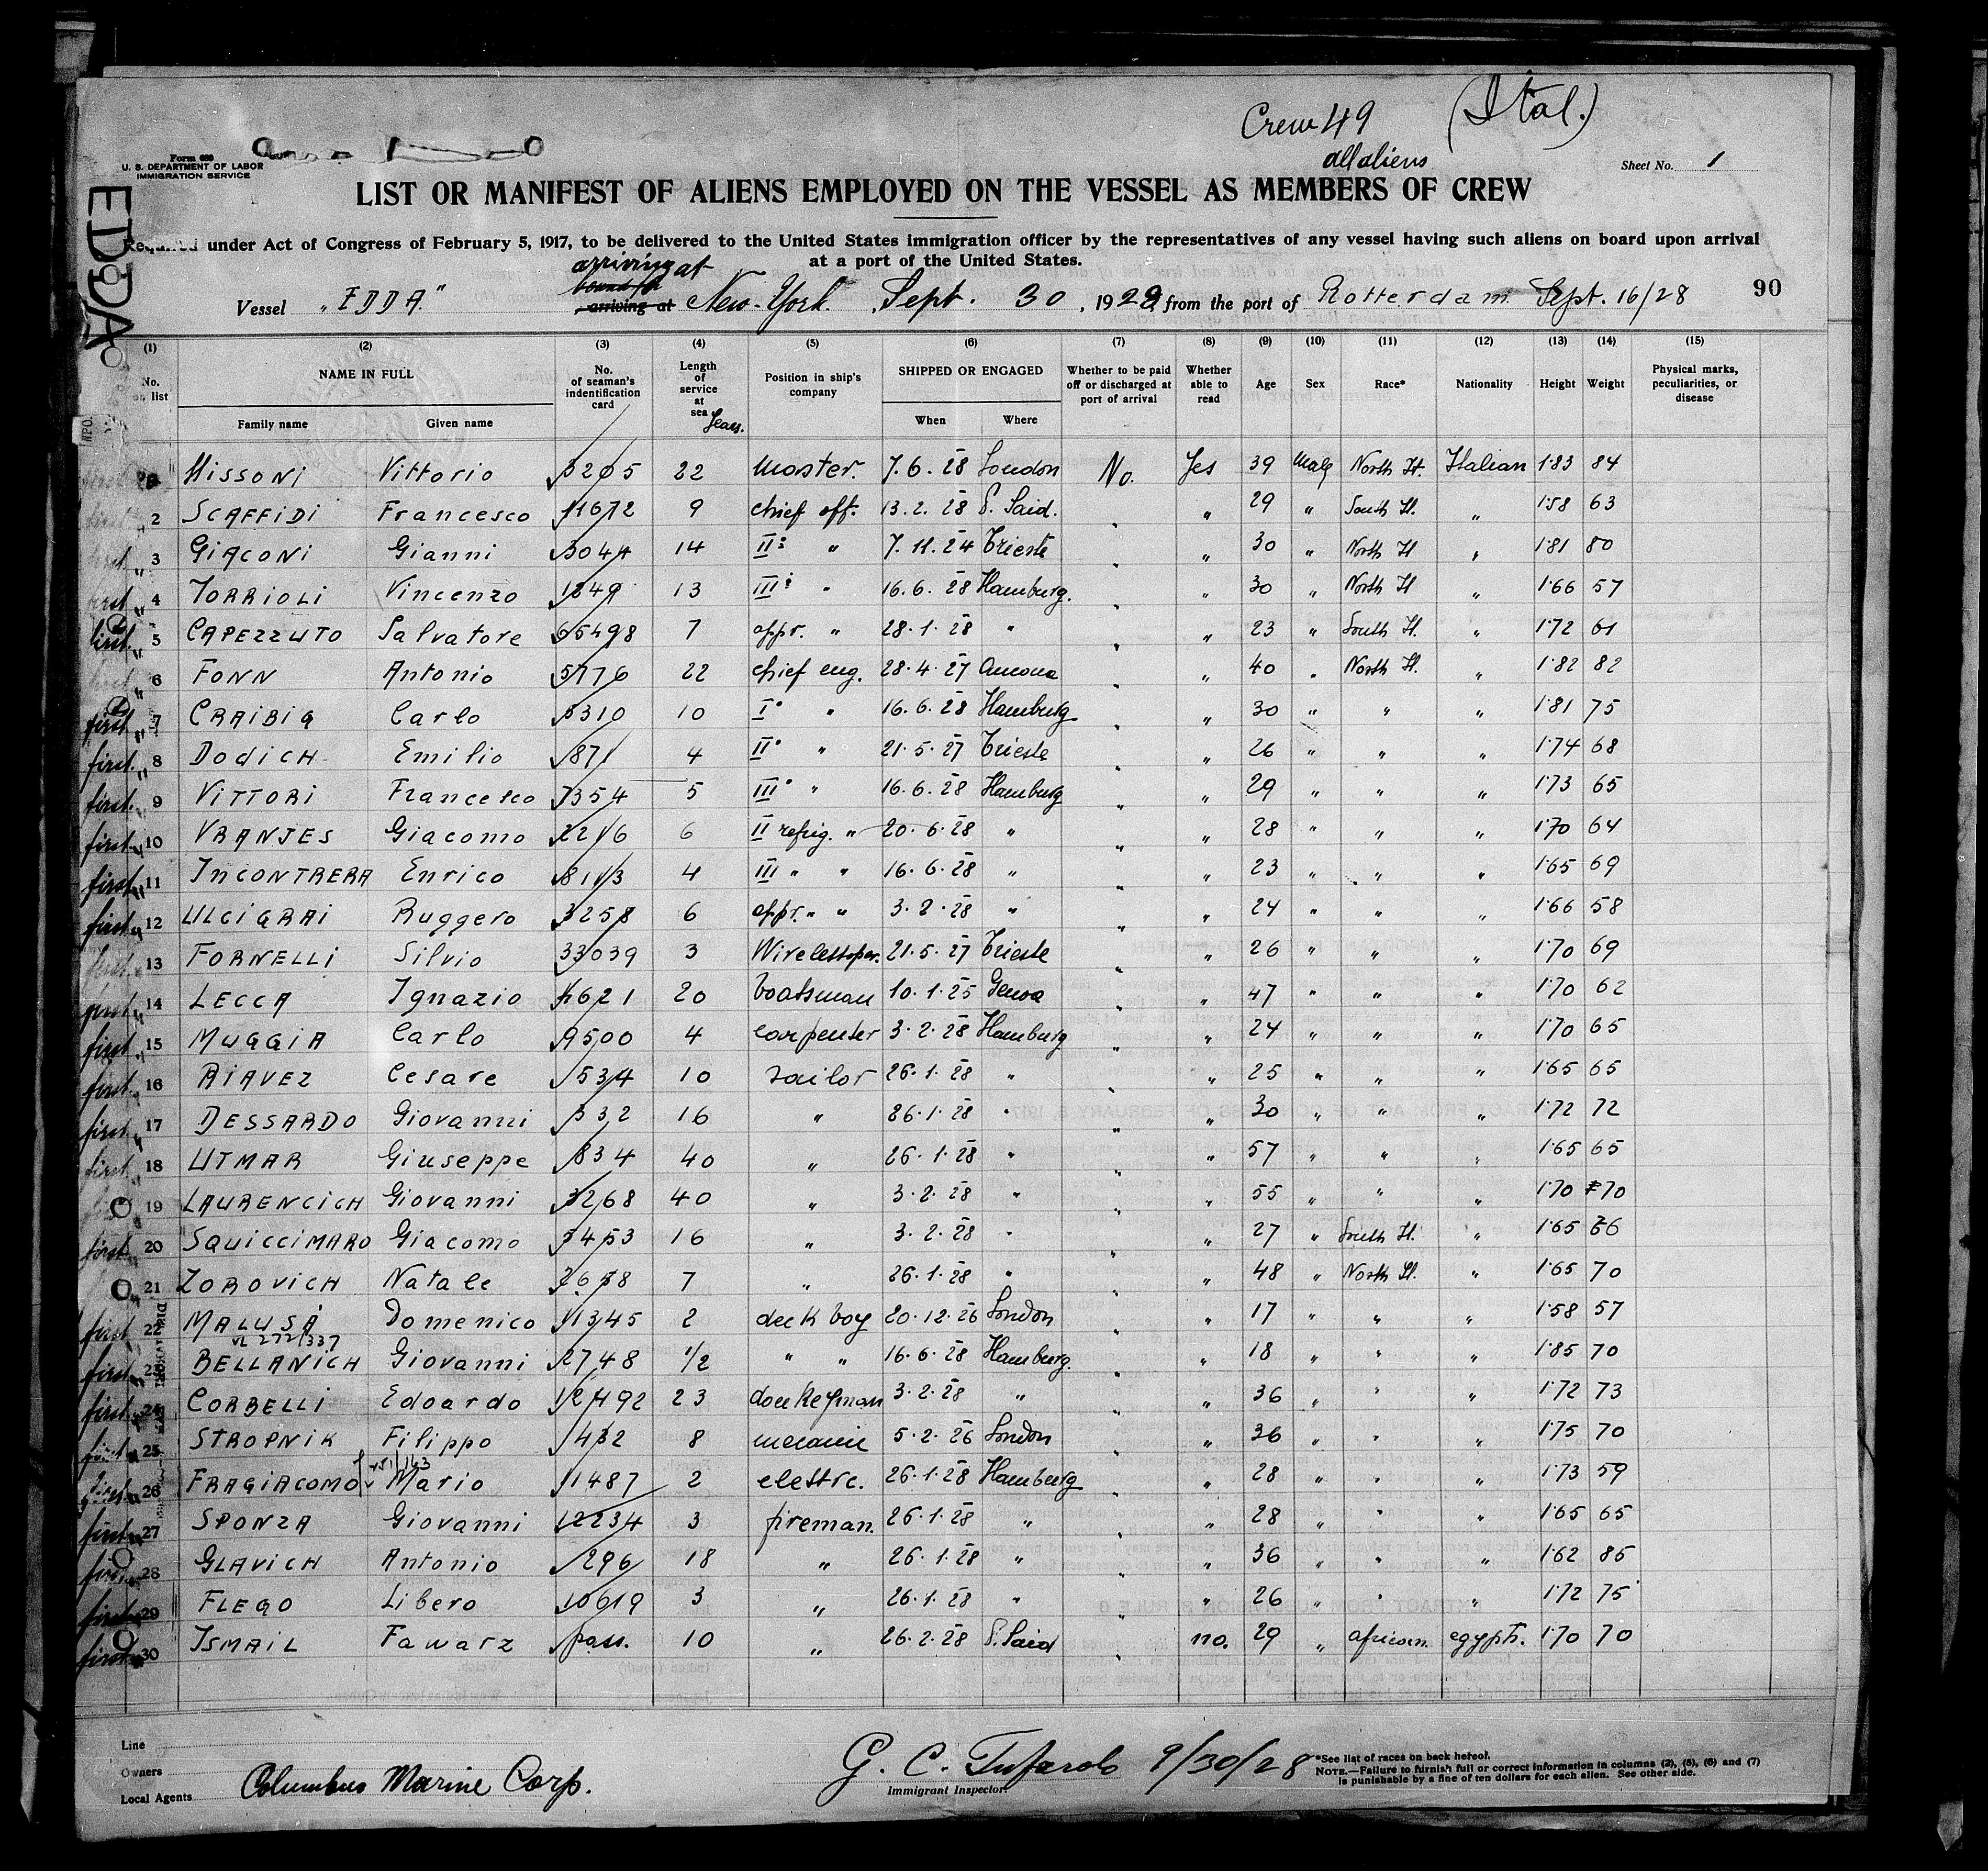 Crew 49 (Ital.)
all aliens
Form 680
U. S. DEPARTMENT OF LABOR
IMMIGRATION SERVICE
Sheet No. 1
EDDA
LIST OR MANIFEST OF ALIENS EMPLOYED ON THE VESSEL AS MEMBERS OF CREW
Required under Act of Congress of February 5, 1917, to be delivered to the United States immigration officer by the representatives of any vessel having such aliens on board upon arrival
at a port of the United States.
arriving at
bound for
Vessel "EDDA." arriving at New-York. Sept. 30, 1928, from the port of Rotterdam Sept. 16/28 90
(1) (2) (3) (4) (5) (6) (7) (8) (9) (10) (11) (12) (13) (14) (15)
No. on list NAME IN FULL Family name Given name No. of seaman's indentification card Length of service at sea Years. Position in ship's company SHIPPED OR ENGAGED When Where Whether to be paid off or discharged at port of arrival Whether able to read Age Sex Race* Nationality Height Weight Physical marks, peculiarities, or disease
MISSONI Vittorio 3205 22 Master. 7.6.28 London No. Yes 39 Male North It. Italian 1.83 84
2 SCAFFIDI Francesco 11672 9 chief off. 13.2.28 P. Said. " 29 " South It. " 1.58 63
3 GIACONI Gianni 3044 14 II° " 7.11.24 Trieste " " 30 " North It " 1.81 80
4 TORRIOLI Vincenzo 1249 13 III° " 16.6.28 Hamburg. " " 30 " North It " 1.66 57
first 5 CAPEZZUTO Salvatore 65498 7 appr. " 28.1.28 " " " 23 " South It. " 1.72 61
6 FONN Antonio 5776 22 chief eng. 28.4.27 Ancona " " 40 " North It. " 1.82 82
first 7 CRAIBIG Carlo 5310 10 I° " 16.6.28 Hamburg " " 30 " " " 1.81 75
first 8 DODICH Emilio 871 4 II° " 21.5.27 Trieste " " 26 " " " 1.74 68
first 9 VITTORI Francesco 7354 5 III° " 16.6.28 Hamburg " " 29 " " " 1.73 65
first 10 VRANJES Giacomo 2216 6 II refrig. " 20.6.28 " " " 28 " " " 1.70 64
first 11 INCONTRERA Enrico 8113 4 III " " 16.6.28 " " " 23 " " " 1.65 69
first 12 ULCIGRAI Ruggero 3258 6 appr. " " 3.2.28 " " " 24 " " " 1.66 58
first 13 FORNELLI Silvio 33039 3 Wireless oper. 21.5.27 Trieste " " 26 " " " 1.70 69
first 14 LECCA Ignazio 4621 20 boatsman 10.1.25 Genoa " " 47 " " " 1.70 62
first 15 MUGGIA Carlo 9500 4 carpenter 3.2.28 Hamburg " " 24 " " " 1.70 65
first 16 RIAVEZ Cesare 534 10 sailor 26.1.28 " " " 25 " " " 1.65 65
first 17 DESSARDO Giovanni 332 16 " 26.1.28 " " " 30 " " " 1.72 72
first 18 UTMAR Giuseppe 834 40 " 26.1.28 " " " 57 " " " 1.65 65
19 LAURENCICH Giovanni 3268 40 " 3.2.28 " " " 55 " " " 1.70 70
first 20 SQUICCIMARO Giacomo 5453 16 " 3.2.28 " " " 27 " South It. " 1.65 66
21 ZOROVICH Natale 7 " 26.1.28 " " " 48 " North It. " 1.65 70
first 22 MALUSÁ Domenico 11345 2 deck boy 20.12.26 London " " 17 " " " 1.58 57
VL 272/337
first 23 BELLANICH Giovanni 2748 1/2 " " 16.6.28 Hamburg. " " 18 " " " 1.85 70
first 24 CORBELLI Edoardo 12492 23 donkeyman 3.2.28 " " " 36 " " " 1.72 73
first 25 STROPNIK Filippo 432 8 5.2.26 London " " 36 " " " 1.75 70
first 26 FRAGIACOMO Mario 11487 2 elettrc. 26.1.28 Hamburg " " 28 " " " 1.73 59
first 27 SPONZA Giovanni 12234 3 fireman. 26.1.28 " " " 28 " " " 1.65 65
first 28 GLAVICH Antonio 296 18 " 26.1.28 " " " 36 " " " 1.62 85
first 29 FLEGO Libero 10619 3 " 26.1.28 " " " 26 " " " 1.72 75
first 30 ISMAIL Fawarz pass. 10 " 26.2.28 P. Said " no. 29 " african egypt. 1.70 70
Line
Owners
Local Agents Columbus Marine Corp.
G. C. Tufarolo 9/30/28
Immigrant Inspector.
*See list of races on back hereof.
NOTE.—Failure to furnish full or correct information in columns (2), (5), (6) and (7)
is punishable by a fine of ten dollars for each alien. See other side.